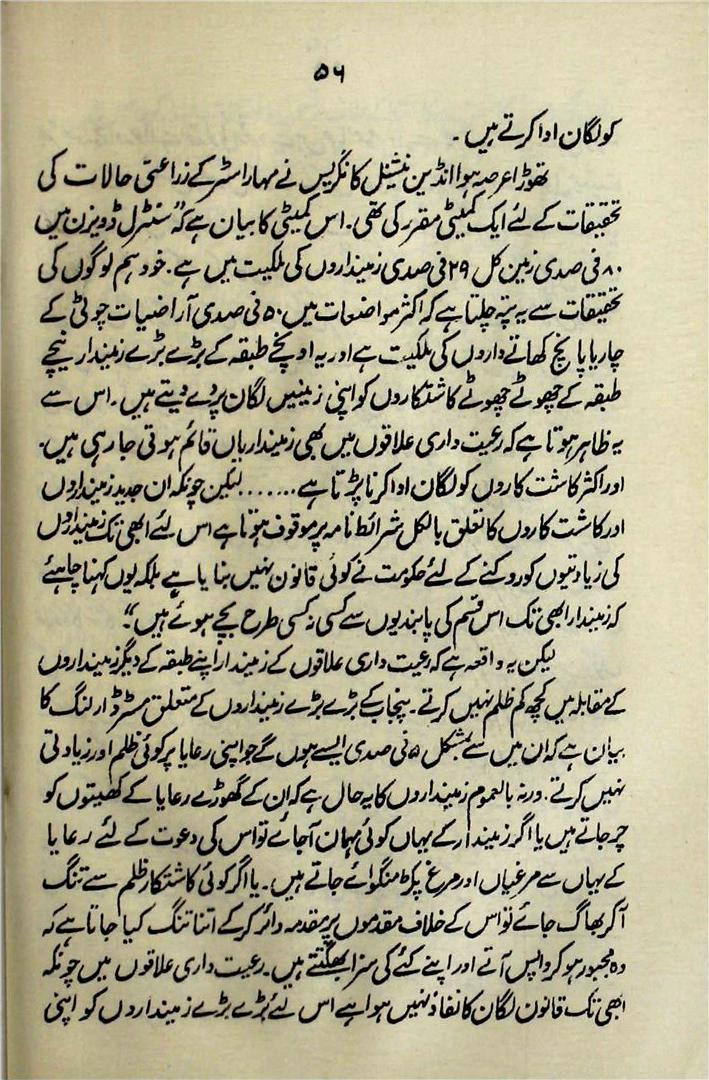 ۵۶
کو لگان ادا کرتے ہیں۔
تھوڑا عرصہ ہوا انڈین نیشنل کانگریس نے مہاراسٹر کے زراعتی حالات کی
تحقیقات کے لئے ایک کمیٹی مقرر کی تھی۔ اس کمیٹی کا بیان ہے کہ "سنٹرل ڈویزن میں
۸۰ فی صدی زمین کل ۲۹ فی صدی زمینداروں کی ملکیت میں ہے۔ خود ہم لوگوں کی
تحقیقات سے یہ پتہ چلتا ہے کہ اکثر مواضعات میں ۵۰ فی صدی آراضیات چوٹی کے
چار یا پانچ کھاتے داروں کی ملکیت ہے اور یہ اونچے طبقہ کے بڑے بڑے زمیندار نیچے
طبقہ کے چھوٹے چھوٹے کاشتکاروں کو اپنی زمینیں لگان پر دے دیتے ہیں۔ اس سے
یہ ظاہر ہوتا ہے کہ رعیت داری علاقوں میں بھی زمینداریاں قائم ہوتی جا رہی ہیں۔
اور اکثر کاشت کاروں کو لگان ادا کرنا پڑتا ہے ....... لیکن چونکہ ان جدید زمینداروں
اور کاشت کاروں کا تعلق بالکل شرائط نامہ پر موقوف ہوتا ہے اس لئے ابھی تک زمینداروں
کی زیادتیوں کو روکنے کے لئے حکومت نے کوئی قانون نہیں بنایا ہے بلکہ یوں کہنا چاہئے
کہ زمیندار ابھی تک اس قسم کی پابندیوں سے کسی نہ کسی طرح بچے ہوئے ہیں"۔
لیکن یہ واقعہ ہے کہ رعیت داری علاقوں کے زمیندار اپنے طبقہ کے دیگر زمینداروں
کے مقابلہ میں کچھ کم ظلم نہیں کرتے۔ پنجاب کے بڑے بڑے زمینداروں کے متعلق مسٹر ڈارلنگ کا
بیان ہے کہ ان میں سے بمشکل ۵ فی صدی ایسے ہوں گے جو اپنی رعایا پر کوئی ظلم اور زیادتی
نہیں کرتے۔ ورنہ بالعموم زمینداروں کا یہ حال ہے کہ ان کے گھوڑے رعایا کے کھیتوں کو
چر جاتے ہیں یا اگر زمیندار کے یہاں کوئی مہمان آ جائے تو اس کی دعوت کے لئے رعایا
کے یہاں سے مرغیاں اور مرغ پکڑ منگوائے جاتے ہیں۔ یا اگر کوئی کاشتکار ظلم سے تنگ
آکر بھاگ جائے تو اس کے خلاف مقدموں پر مقدمہ دائر کر کے اتنا تنگ کیا جاتا ہے کہ
وہ مجبور ہو کر واپس آتے اور اپنے کئے کی سزا بھگتتے ہیں۔ رعیت داری علاقوں میں چونکہ
ابھی تک قانون لگان کا نفاذ نہیں ہوا ہے اس لئے بڑے بڑے زمینداروں کو اپنی